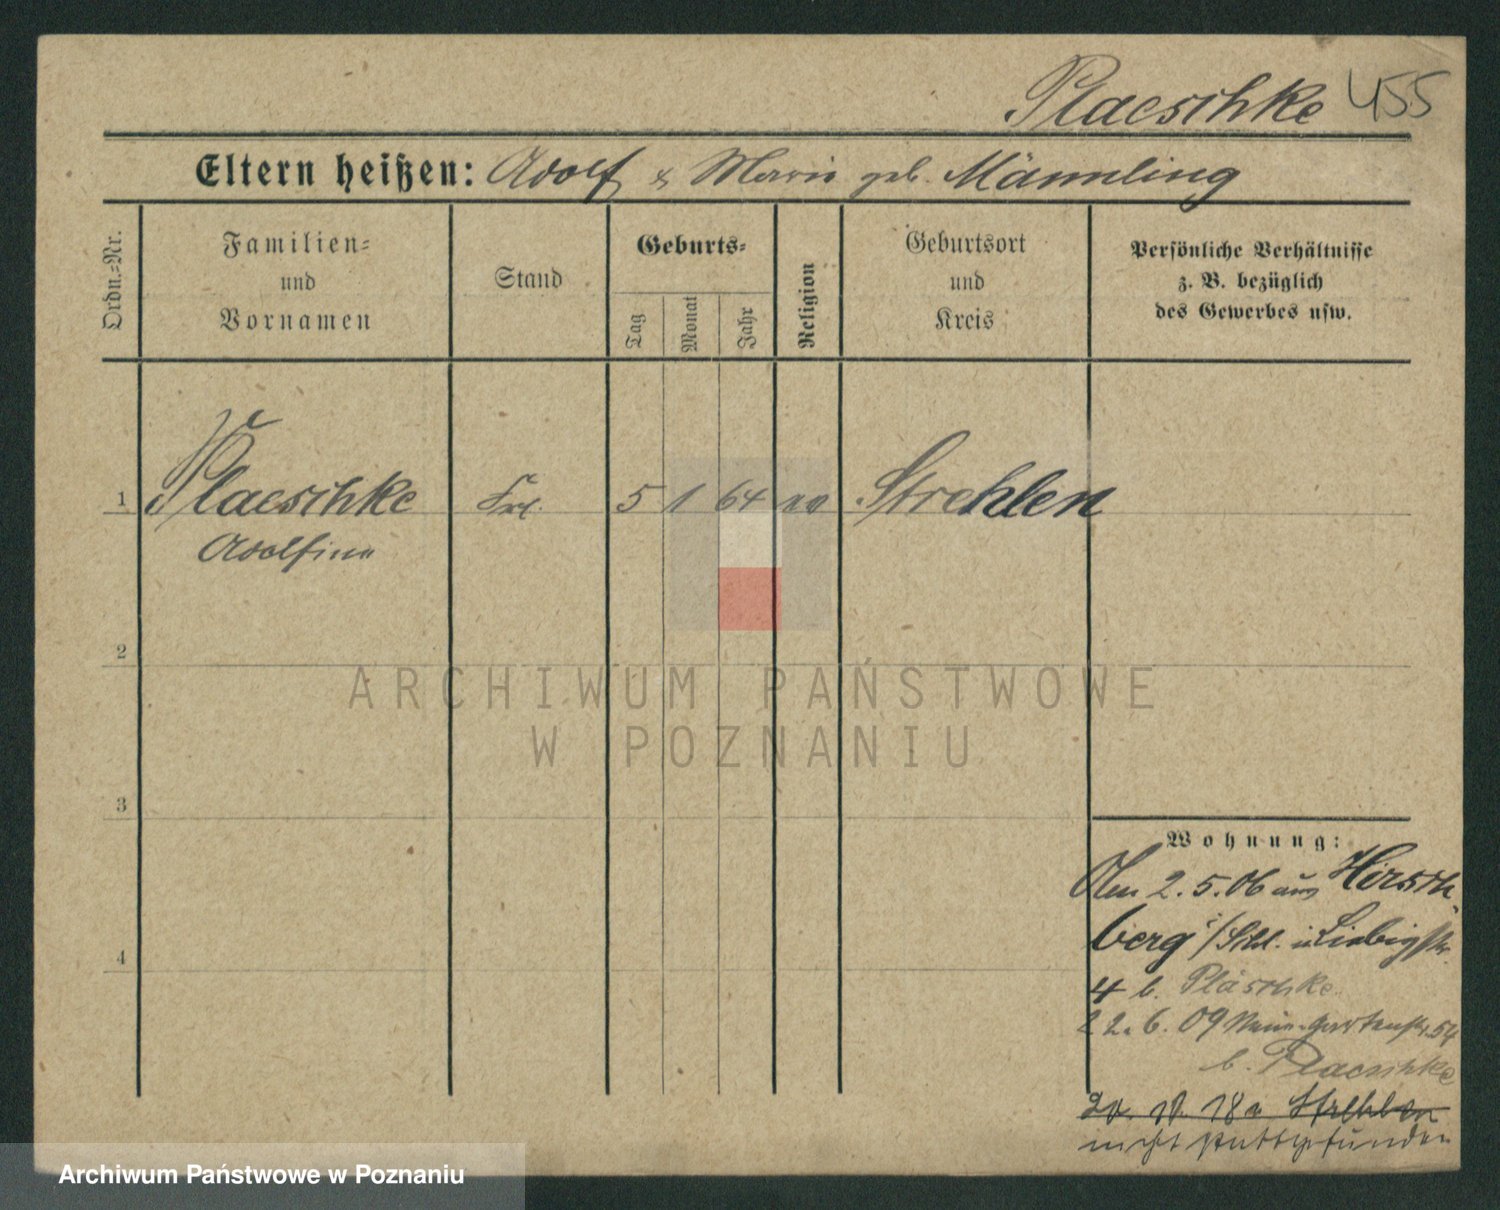 Plaeschke 455
Eltern heißen: Adolf & Marie geb. Männling
Ordn.=Nr.
Familien=
und
Vornamen
Stand
Geburts=
Tag
Monat
Jahr
Religion
Geburtsort
und
Kreis
Persönliche Verhältnisse
z. B. bezüglich
des Gewerbes usw.
1 Plaeschke Frl. 5 1 64 Strehlen
Adolfine
2
3
4
Wohnung:
2.5.06 aus Hirsch
berg i/Schl. in Liebigstr.
4 b. Pläschke
22.6.09 Neue Gartenstr. 54
b. Plaeschke
18 Strehlen
nicht stattgefunden
ARCHIWUM PAŃSTWOWE
W POZNANIU
Archiwum Państwowe w Poznaniu